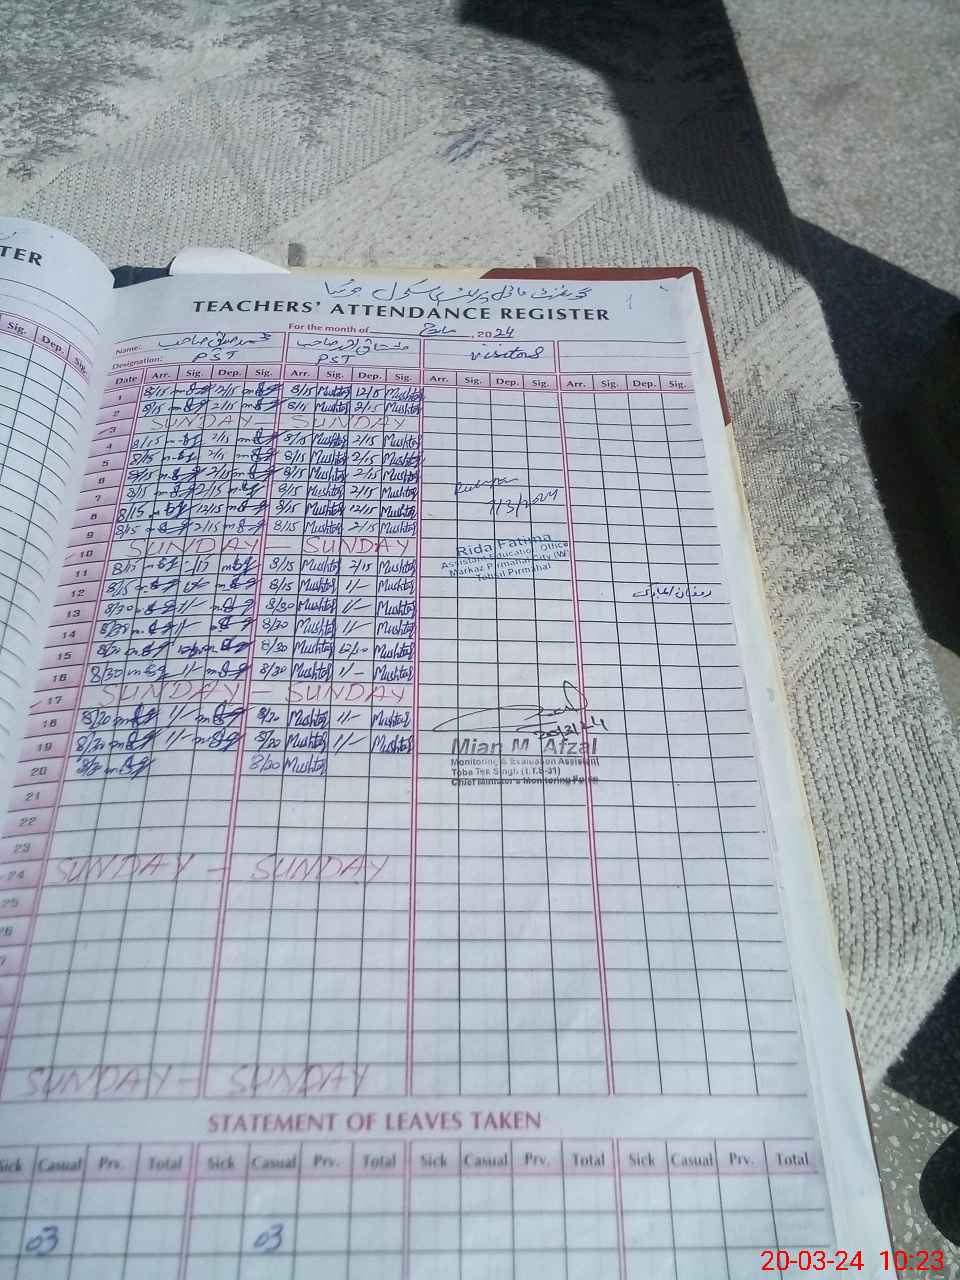 TER
Sig.
Dep.
Sig.
TEACHERS' ATTENDANCE REGISTER
For the month of مارچ, 2024
Name: محمد صدیق صاحب مشتاق احمد صاحب visitors
Designation: PST PST
Date Arr. Sig. Dep. Sig. Arr. Sig. Dep. Sig. Arr. Sig. Dep. Sig. Arr. Sig. Dep. Sig.
1 8/15 2/15 8/15 Mushtaq 12/15 Mushtaq
2 8/15 2/15 8/15 Mushtaq 2/15 Mushtaq
3 SUNDAY - SUNDAY
4 8/15 2/15 8/15 Mushtaq 2/15 Mushtaq
5 8/15 2/15 8/15 Mushtaq 2/15 Mushtaq
6 8/15 2/15 8/15 Mushtaq 2/15 Mushtaq
7 8/15 2/15 8/15 Mushtaq 2/15 Mushtaq
8 8/15 12/15 8/15 Mushtaq 12/15 Mushtaq 7/3/2024
9 8/15 2/15 8/15 Mushtaq 2/15 Mushtaq
10 SUNDAY - SUNDAY
Rida Fatima
Assistant Education Officer
Markaz Pirmahal City (W)
Tehsil Pirmahal
11 8/15 2/15 8/15 Mushtaq 2/15 Mushtaq
12 8/15 1/- 8/15 Mushtaq 1/- Mushtaq رمضان المبارک
13 8/30 1/- 8/30 Mushtaq 1/- Mushtaq
14 8/30 1/- 8/30 Mushtaq 1/- Mushtaq
15 8/30 8/30 Mushtaq 12/10 Mushtaq
16 8/30 1/- 8/30 Mushtaq 1/- Mushtaq
17 SUNDAY - SUNDAY
18 8/30 1/- 8/30 Mushtaq 1/- Mushtaq
19 8/30 1/- 8/30 Mushtaq 1/- Mushtaq
20 8/30 8/30 Mushtaq
20/3/24
Mian M. Afzal
Monitoring & Evaluation Assistant
Toba Tek Singh (T.T.S-31)
Chief Minister's Monitoring Force
21
22
23
24 SUNDAY - SUNDAY
25
26
SUNDAY - SUNDAY
STATEMENT OF LEAVES TAKEN
Sick Casual Prv. Total Sick Casual Prv. Total Sick Casual Prv. Total Sick Casual Prv. Total
03 03
20-03-24 10:23